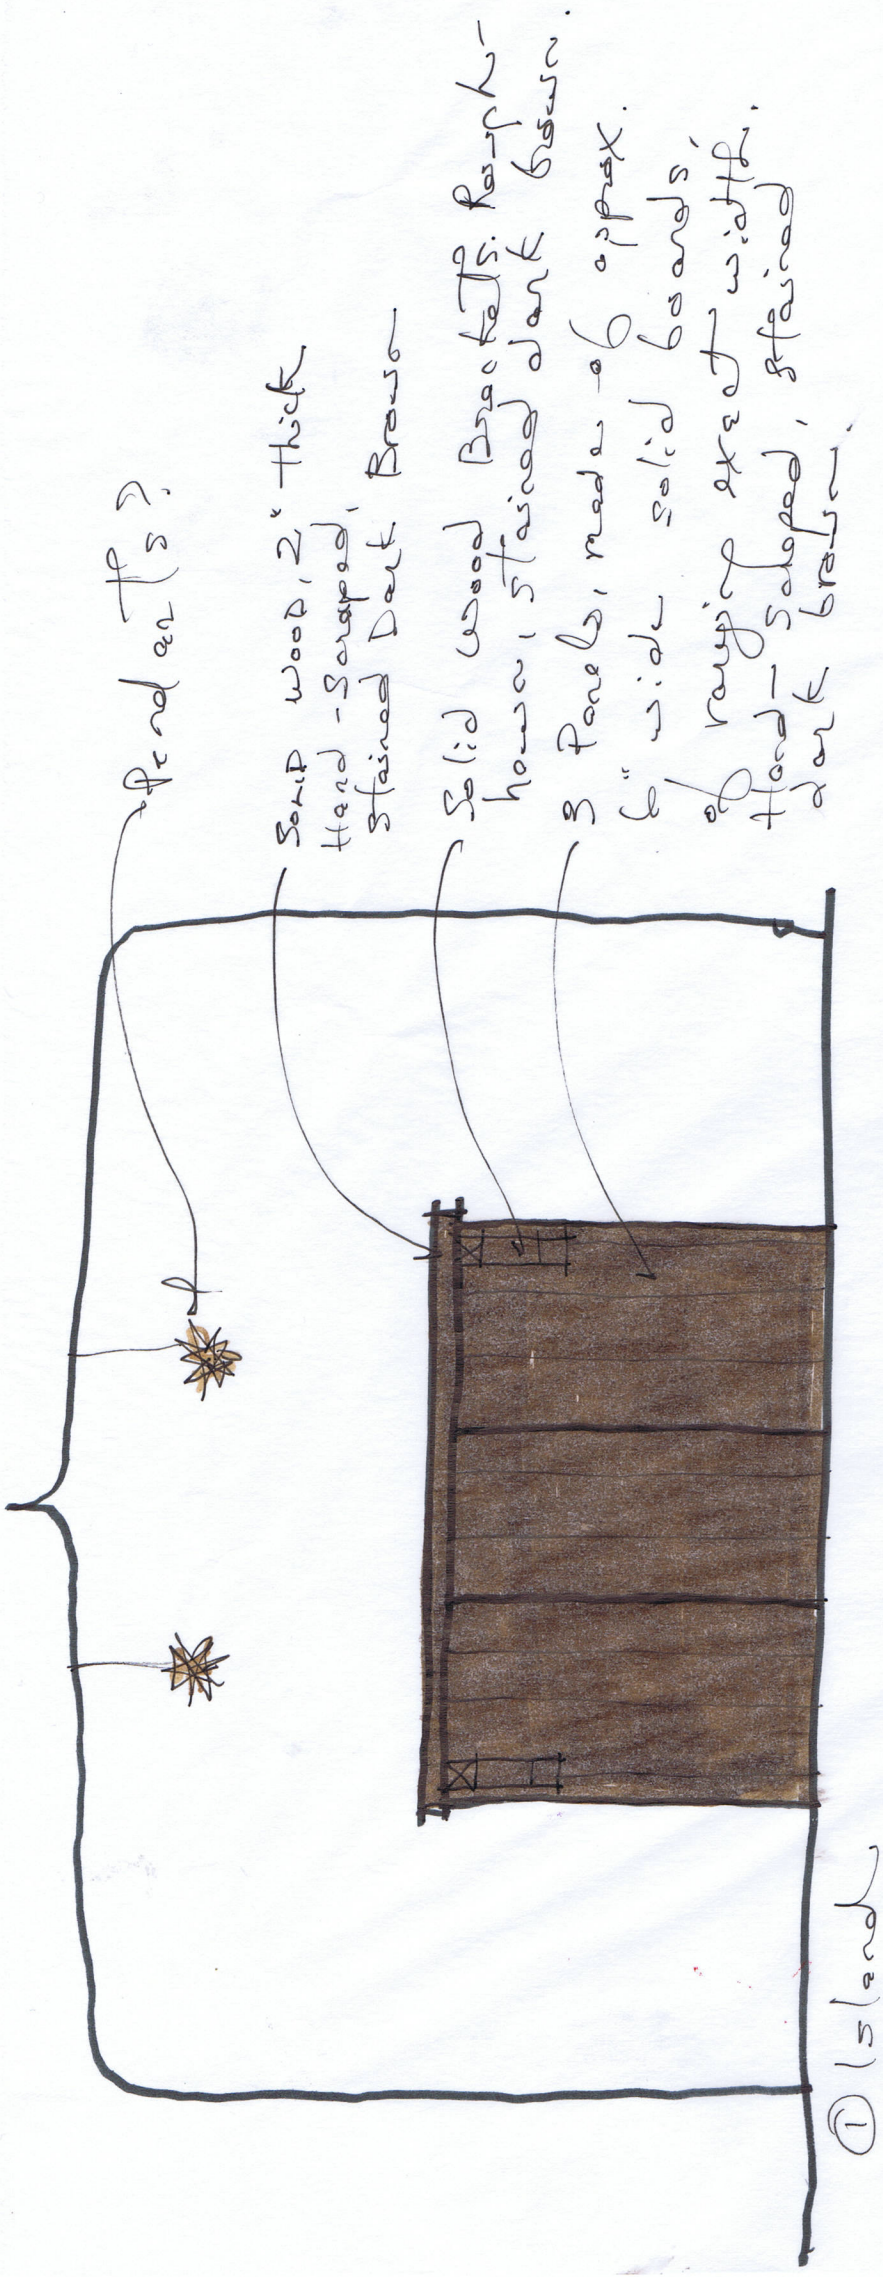 Pendant(s)?
Solid wood, 2" thick
Hand-Scraped,
Stained Dark Brown
Solid wood Brackets. Rough-
hewn, stained dark brown.
3 Panels, made of approx.
6" wide solid boards,
of varying exact width.
Hand-Scraped, stained
dark brown.
① Island